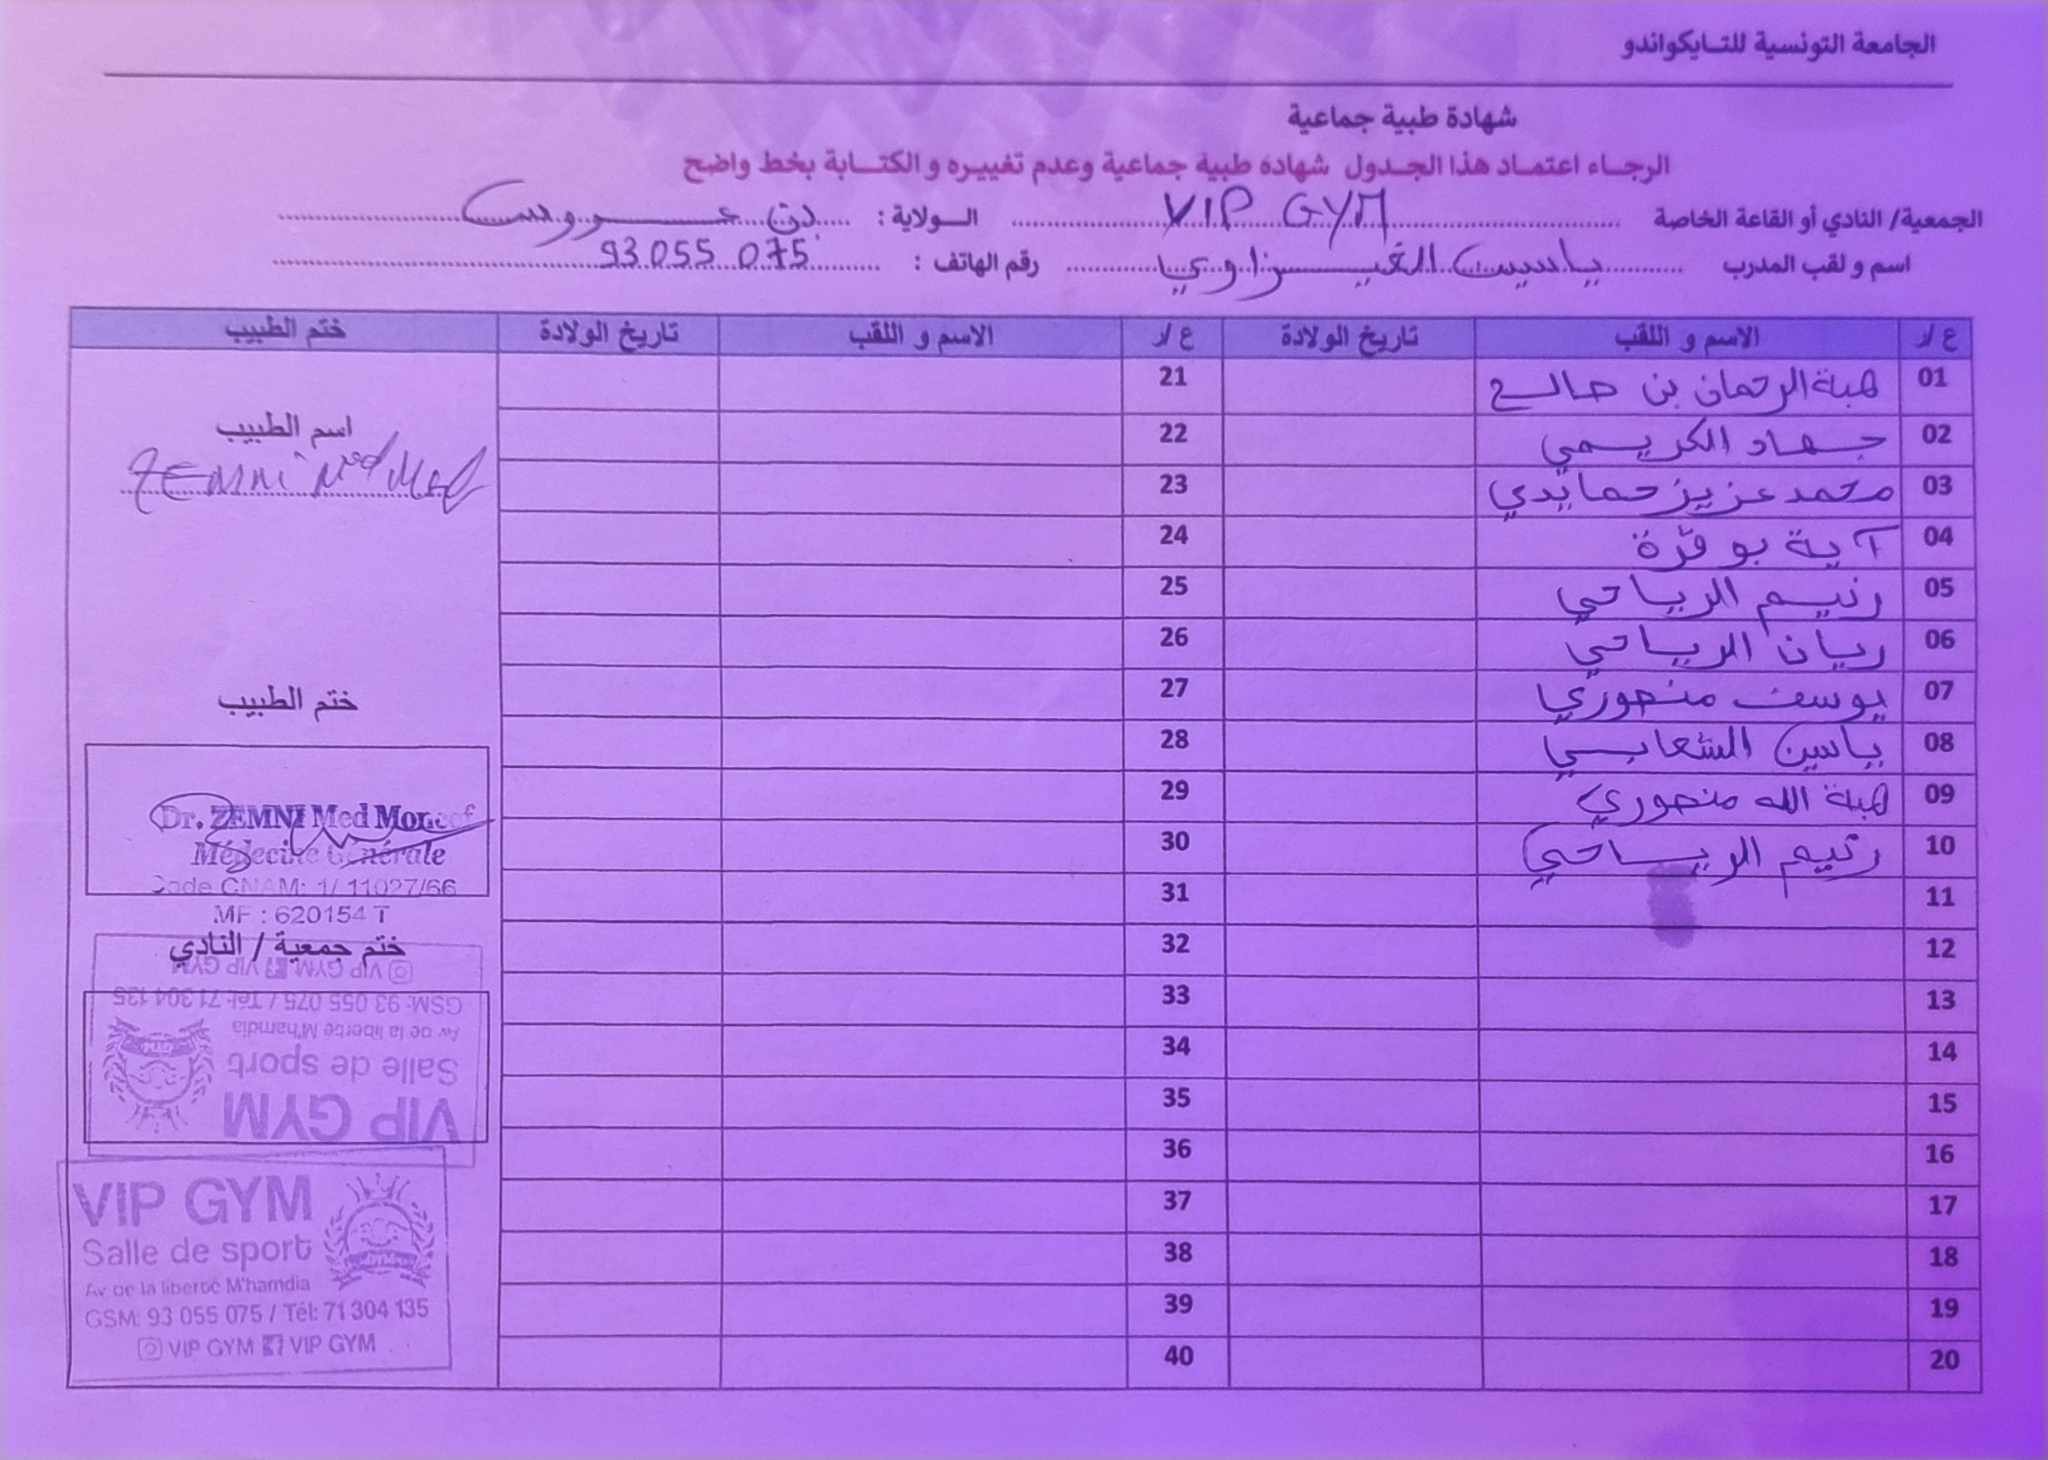 الجامعة التونسية للتايكواندو
شهادة طبية جماعية
الرجاء اعتماد هذا الجدول شهادة طبية جماعية وعدم تغييره و الكتابة بخط واضح
الجمعية/ النادي أو القاعة الخاصة VIP GYM الولاية : بن عروس
اسم و لقب المدرب ياسين الغيزاوي رقم الهاتف : 93 055 075
ع/ر الاسم و اللقب تاريخ الولادة ع/ر الاسم و اللقب تاريخ الولادة ختم الطبيب
01 هبة الرحمان بن صالح 21
02 جهاد الكريمي 22
03 محمد عزيز حمايدي 23
04 آية بوقرّة 24
05 رنيم الرياحي 25
06 ريان الرياحي 26
07 يوسف منصوري 27
08 ياسين الشعابي 28
09 هبة الله منصوري 29
10 رتيم الرياحي 30
11 31
12 32
13 33
14 34
15 35
16 36
17 37
18 38
19 39
20 40
اسم الطبيب
ZEMNI Med
ختم الطبيب
Dr. ZEMNI Med Moncef
Médecine Générale
Code CNAM: 1/ 11027/66
MF : 620154 T
ختم جمعية / النادي
VIP GYM
Salle de sport
Av de la liberté M'hamdia
GSM: 93 055 075 / Tél: 71 304 135
VIP GYM VIP GYM
VIP GYM
Salle de sport
Av de la liberté M'hamdia
GSM: 93 055 075 / Tél: 71 304 135
VIP GYM VIP GYM